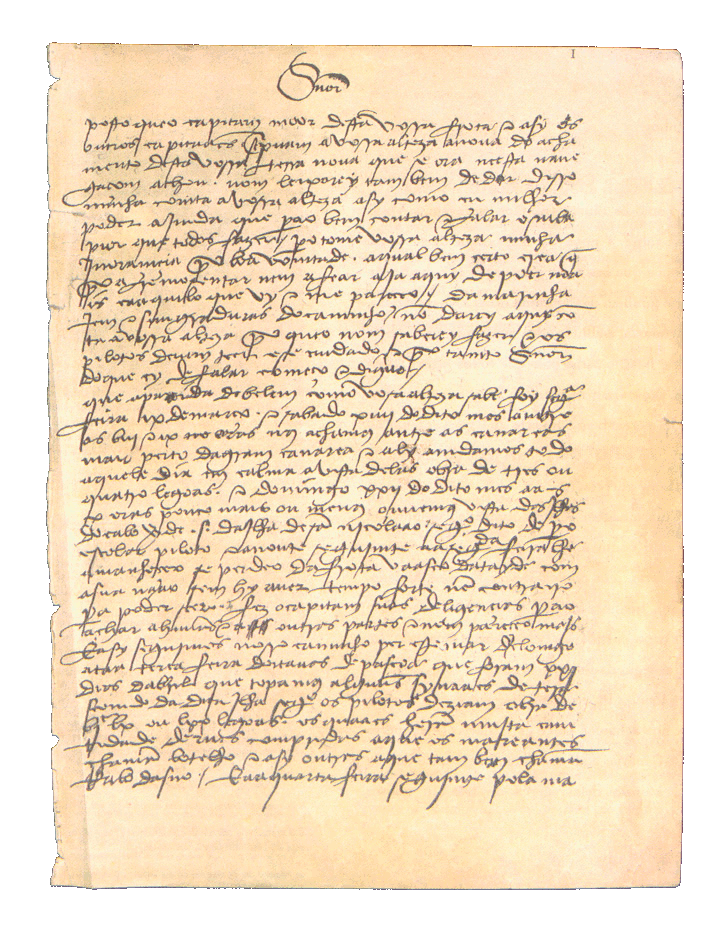 1
Snõr
posto queo capitam moor desta vossa frota e asy os
outros capitaães screpuam a vossa alteza anoua do acha
mento desta vossa terra noua que se ora neesta naue
gaçom achou. nom leixarey tam bem de dar disso
minha comta avossa alteza asy como eu milhor
poder ajmda que pera o bem contar e falar o saiba
pior que todos fazer. / pero tome vossa alteza minha
jnoramçia por boa vomtade. aqual bem certo crea q̃
por afremosentar nem afear aja aquy de poer mais
caaquilo que vy e me pareçeo. / da marinha
jem e simgraduras do caminho nõ darey aquy cõ
ta a vossa alteza por que o nom saberey fazer e os
pilotos deuem teer ese cuidado e por tanto Snõr
do que ey de falar começo e diguo. /
que apartida de belem como vosa alteza sabe foy segª
feira ix de março. e sabado xiiij do dito mes amtre
as biij e ix oras nos achamos amtre as canareas
mais perto da gram canarea e aly amdamos todo
aquele dia em calma avista delas obra de tres ou
quatro legoas. e domingo xxij do dito mes aas
x oras pouco mais ou menos ouuemos vista das jlhas
do cabo verde .s. da jlha de sã njcolaao segº dito de pº
escolar piloto. e anoute segujmte aasegª feira lhe
amanheceo se perdeo da frota vaasco datayde com
asua naao sem hy auer tempo forte nẽ contrairo
pera poder seer. fez ocapitam suas deligençias pera o
achar a huũas e outras partes e nom pareçeo majs
E asy segujmos nosso caminho per este mar delomgo
ataa terça feira doitauas de pascoa que foram xxj
dias dabril que topamos alguũs synaaes de terra
seemdo da dita jlha segº os pilotos deziam obra de
bjᶜ lx ou lxx legoas. os quaaes herã muita cam
tidade deruas compridas aque os mareantes
chamã botelho e asy outras aque tam bem chamã
Rabo dasno. / E aaquarta feira segujmte pola ma